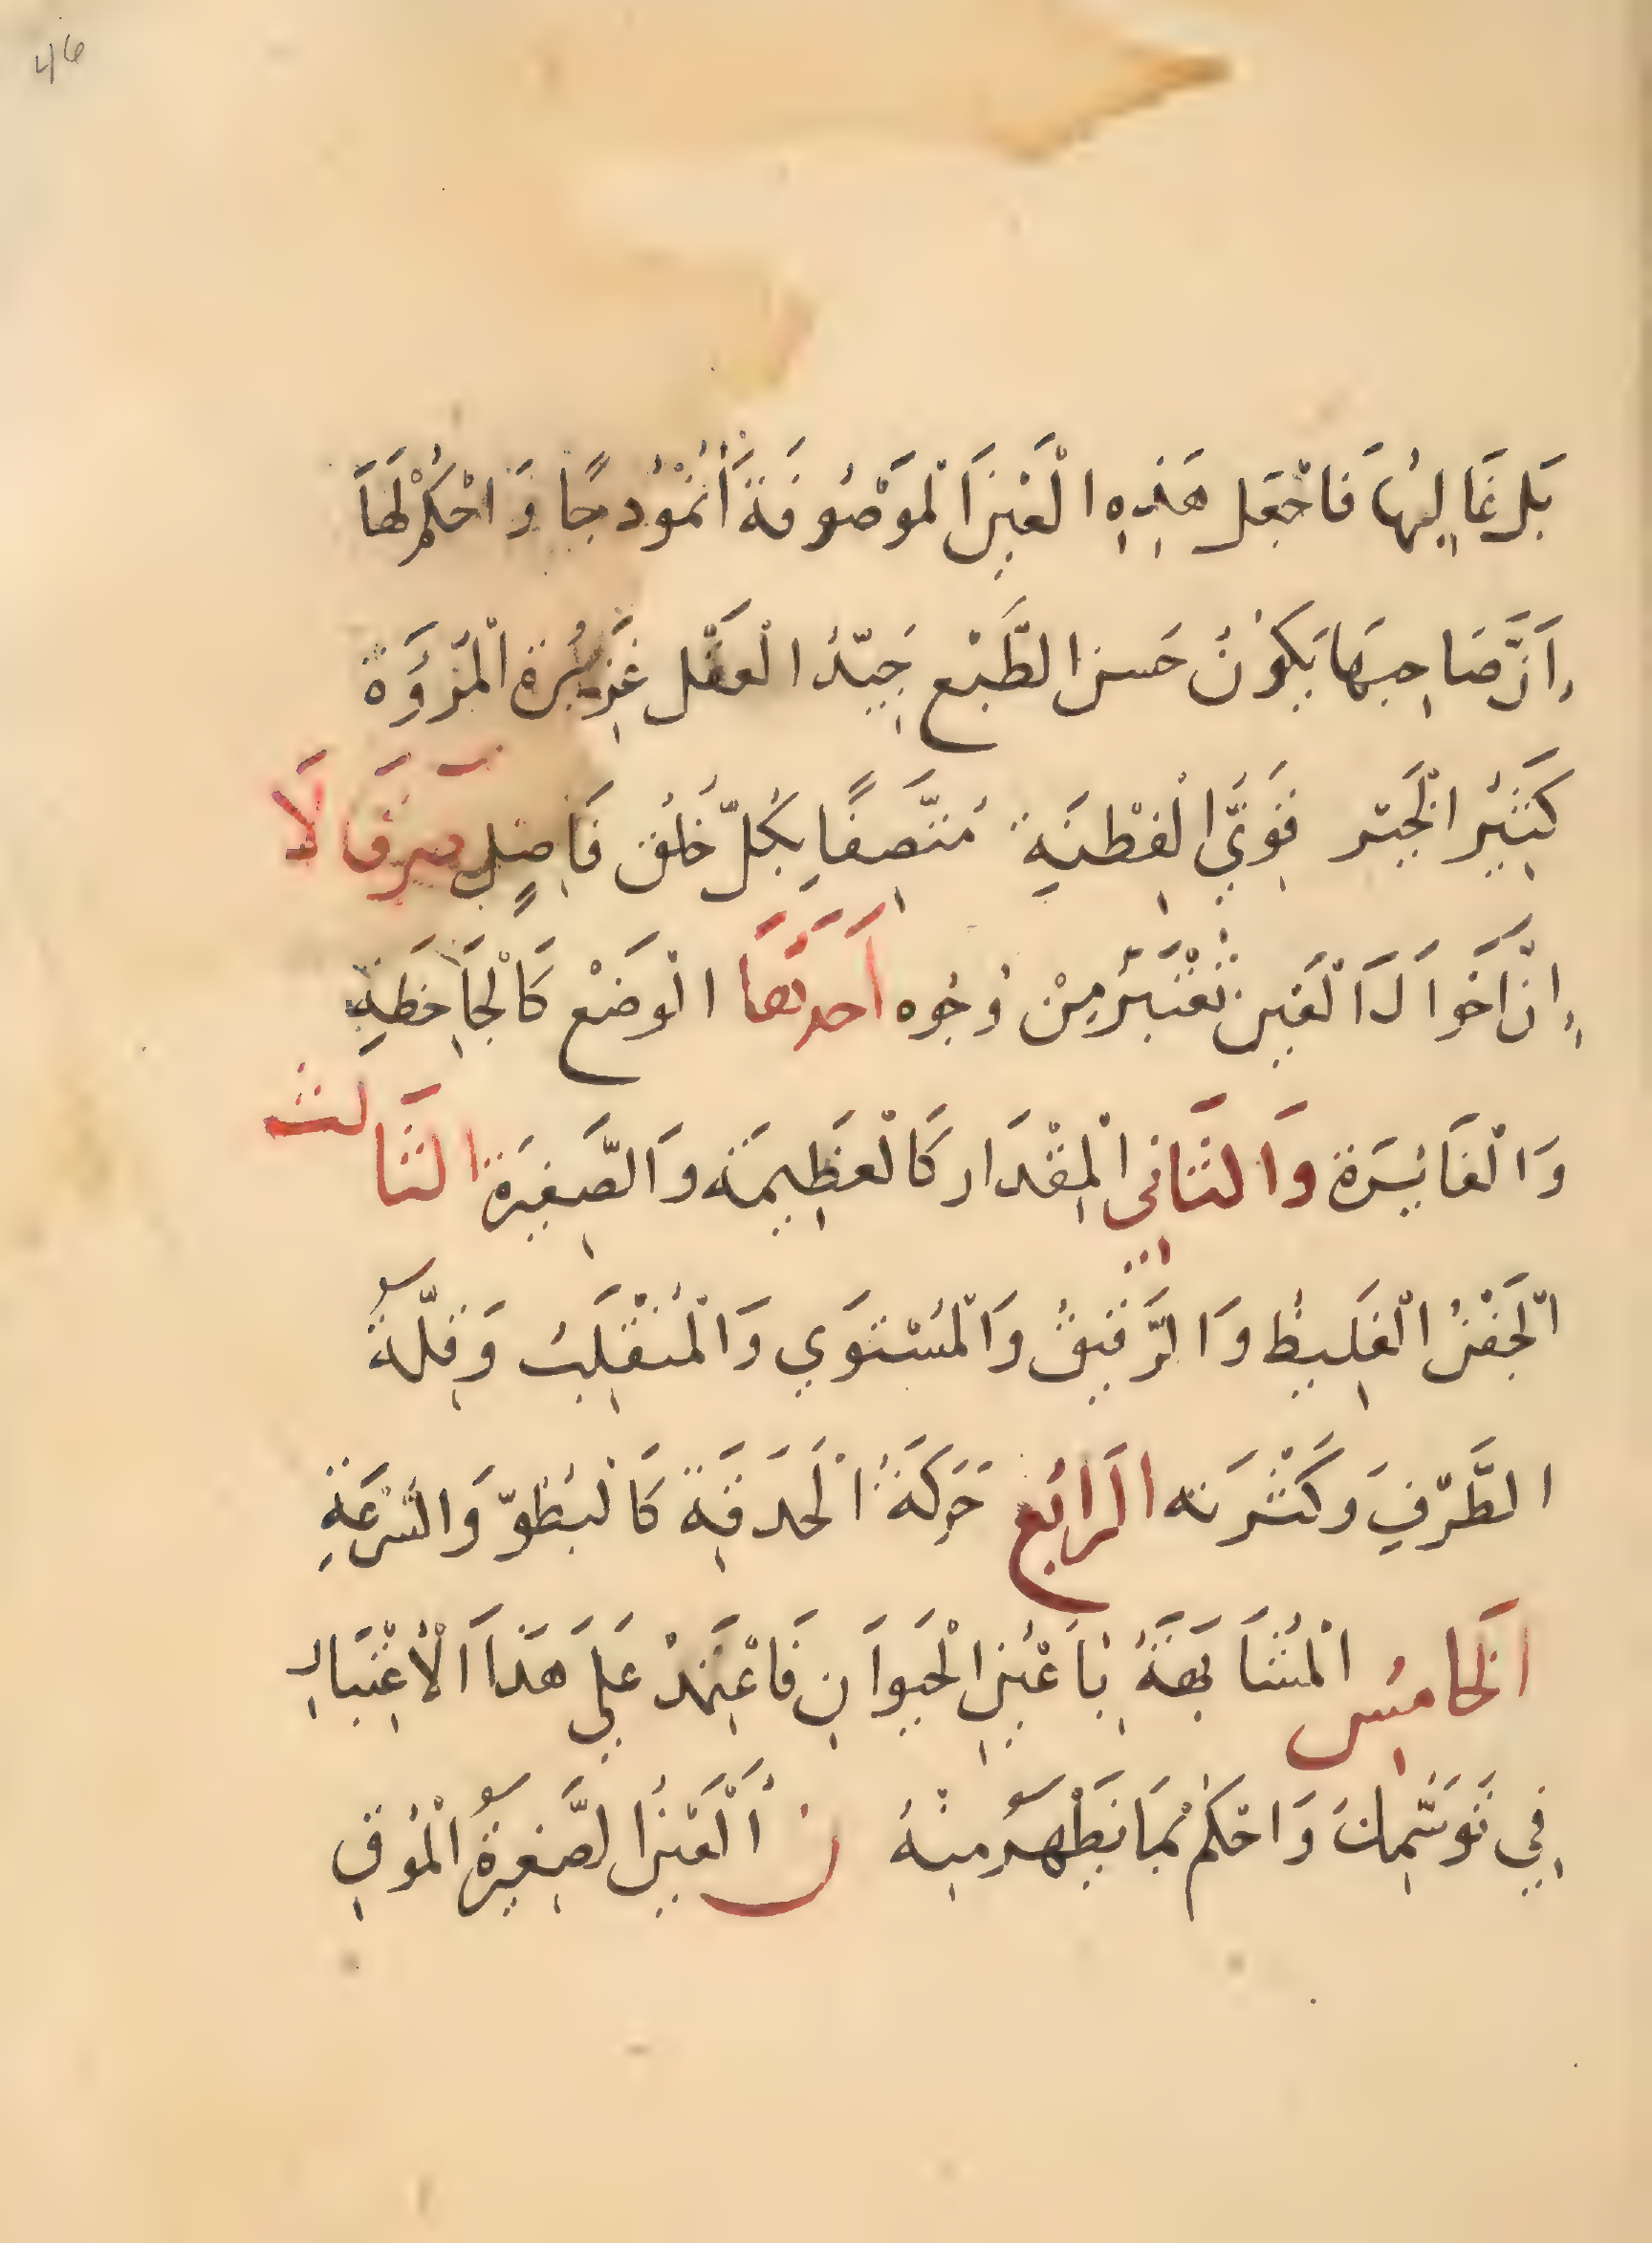 46
بَل غَالِبُهَا فَاجْعَل هَذِهِ الْعَيْنَ الْمَوْصُوفَةَ أُنْمُوُدجًا وَاحْكُمْ لَهَا
اَنَّ صَاحِبَهَا يَكُونُ حَسن الطَّبْع جَيِّدُ الْعَقْل غَزِيرُة الْمُرُوَة
كَثِيْرُ الْخَيْر قَوِيَّ الْفِطْنَةِ مُتَّصِفًا بِكُلّ خُلُق فَاضِلٍ
اِنَّ اَحْوَالَ الْعَيْن تُعْتَبَرُ مِنْ وُجُوه اَحدهَا الْوَضْع كَالْجَاحِظَةِ
وَالْغَائِرَة وَالثَّانِي الْمِقْدَار كَالْعَظِيمَة وَالصَّغِيرَة الثَّالث
الْجَفْنُ الْغَلِيظُ وَالرَّقِيقُ وَالْمُسْتَوِي وَالْمُنْقَلِبُ وَقِلَّةُ
الطَّرْفِ وَكَثْرَته الرَابِع حَرَكَةُ الْحَدَقَةِ كَالْبُطُوّ وَالسُّرْعَةِ
الْخَامِسُ الْمُشَابَهَةُ بِاَعْيُنِ الْحَيَوَانِ فَاعْتَمِدْ عَلَي هَذَا الْاِعْتِبَارِ
فِي تَوَسُّمِكَ وَاحْكُمْ بِمَا يَظْهَرُ مِنْهُ ن اَلْعَيْنُ الصَّغِيرَةُ الْمُوقِ